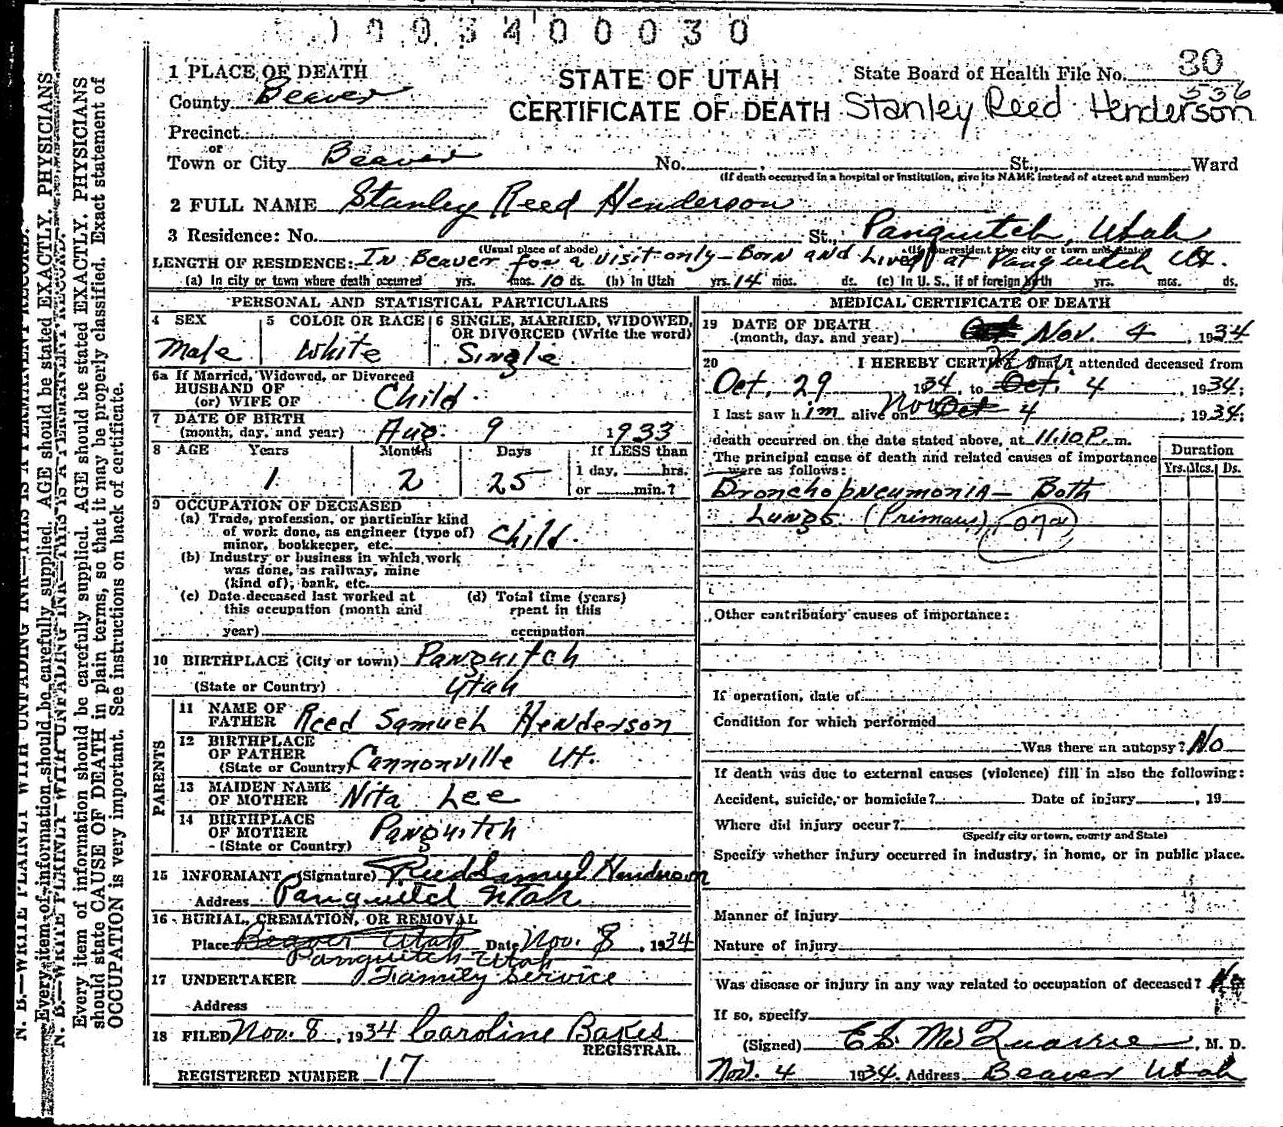 1003400030
1 PLACE OF DEATH
County Beaver
STATE OF UTAH
CERTIFICATE OF DEATH
State Board of Health File No. 30
536
Stanley Reed Henderson
Precinct
or
Town or City Beaver No. St., Ward
(If death occurred in a hospital or institution, give its NAME instead of street and number)
2 FULL NAME Stanley Reed Henderson
3 Residence: No. St., Panguitch, Utah
(Usual place of abode) (If non-resident give city or town and State)
LENGTH OF RESIDENCE: In Beaver for a visit only - Born and Lived at Panguitch Ut.
(a) In city or town where death occurred yrs. mos. 10 ds. (b) In Utah yrs. 14 mos. ds. (c) In U. S., if of foreign birth yrs. mos. ds.
PERSONAL AND STATISTICAL PARTICULARS
4 SEX
Male
5 COLOR OR RACE
White
6 SINGLE, MARRIED, WIDOWED,
OR DIVORCED (Write the word)
Single
6a If Married, Widowed, or Divorced
HUSBAND OF
(or) WIFE OF Child
7 DATE OF BIRTH
(month, day, and year) Aug. 9 1933
8 AGE Years Months Days If LESS than
1 2 25 1 day, hrs.
or min.?
9 OCCUPATION OF DECEASED
(a) Trade, profession, or particular kind
of work done, as engineer (type of)
minor, bookkeeper, etc. Child.
(b) Industry or business in which work
was done, as railway, mine
(kind of), bank, etc.
(c) Date deceased last worked at
this occupation (month and
year)
(d) Total time (years)
spent in this
occupation
10 BIRTHPLACE (City or town) Panguitch
(State or Country) Utah
PARENTS
11 NAME OF
FATHER Reed Samuel Henderson
12 BIRTHPLACE
OF FATHER
(State or Country) Cannonville Ut.
13 MAIDEN NAME
OF MOTHER Nita Lee
14 BIRTHPLACE
OF MOTHER Panguitch
(State or Country)
15 INFORMANT (Signature) Reed Samuel Henderson
Address Panguitch Utah
16 BURIAL, CREMATION, OR REMOVAL
Place Beaver Utah Date Nov. 8, 1934
Panguitch Utah
17 UNDERTAKER Family Service
Address
18 FILED Nov. 8, 1934 Caroline Bakes
REGISTRAR.
REGISTERED NUMBER 17
MEDICAL CERTIFICATE OF DEATH
19 DATE OF DEATH
(month, day, and year) Oct Nov. 4, 1934
20 I HEREBY CERTIFY, That I attended deceased from
Oct. 29 1934 to Oct. Nov 4, 1934;
I last saw him alive on Oct Nov 4, 1934;
death occurred on the date stated above, at 11.10 P. m.
The principal cause of death and related causes of importance
were as follows:
Duration
Yrs. Mos. Ds.
Bronchopneumonia - Both
Lungs (Primary)
Other contributory causes of importance:
If operation, date of
Condition for which performed
Was there an autopsy? No
If death was due to external causes (violence) fill in also the following:
Accident, suicide, or homicide? Date of injury, 19
Where did injury occur?
(Specify city or town, county and State)
Specify whether injury occurred in industry, in home, or in public place.
Manner of injury
Nature of injury
Was disease or injury in any way related to occupation of deceased? No
If so, specify
(Signed) , M. D.
Nov. 4 1934. Address Beaver Utah
N. B.—WRITE PLAINLY WITH UNFADING INK—THIS IS A PERMANENT RECORD.
Every item of information should be carefully supplied. AGE should be stated EXACTLY. PHYSICIANS
N. B.—WRITE PLAINLY WITH UNFADING INK—THIS IS A PERMANENT RECORD.
Every item of information should be carefully supplied. AGE should be stated EXACTLY. PHYSICIANS
should state CAUSE OF DEATH in plain terms, so that it may be properly classified. Exact statement of
OCCUPATION is very important. See instructions on back of certificate.